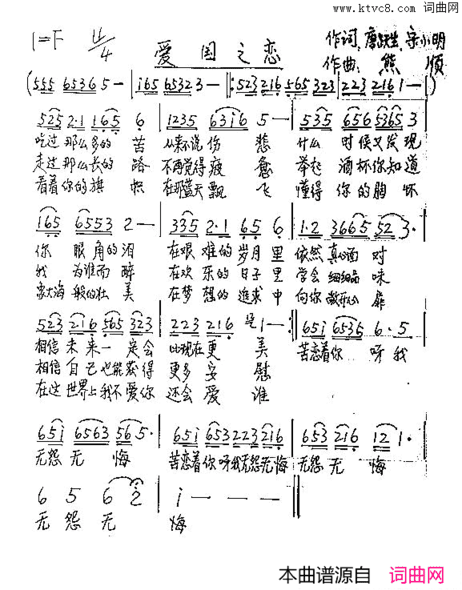 www.ktvc8.com 词曲网
1=F 4/4 爱国之恋 作词:唐跃生、宋小明
作曲:熊 顺
(555 6536 5 - | 165 6532 3 - |: 523 216 565 323 | 223 216 1 - )
525 2·1 165 6 | 1235 6316 5 - | 535 656 5365 3
吃过 那么多的 苦 从来说伤 悲 什么 时候又发现
走过 那么长的 路 不再觉得疲 惫 举起 酒杯你知道
看着你的旗 帜 在那蓝天飘 飞 懂得 你的胸怀
165 6553 2 - | 335 2·1 65 6 | 1·2 3665 52 3·
你 眼角的泪 在艰难的岁月里 依然真心面对
我 为谁而醉 在欢乐的日子里 学会细细品味
大海般的壮美 在梦想的追求中 向你敞开心扉
523 216 565 323 | 223 216 1 - :| 651 6535 6·5
相信未来一定会 比现在更 美 苦恋着你 呀我
相信自己也能获得 更多安 慰
在这世界上我不爱你 还会爱 谁
651 6563 565· | 651 653 223 216 | 653 216 12 1·
无怨无 悔 苦恋着你呀我无怨无悔 无怨无 悔
6 5 6 2 | i - - - ‖
无 怨 无 悔
本曲谱源自 词曲网